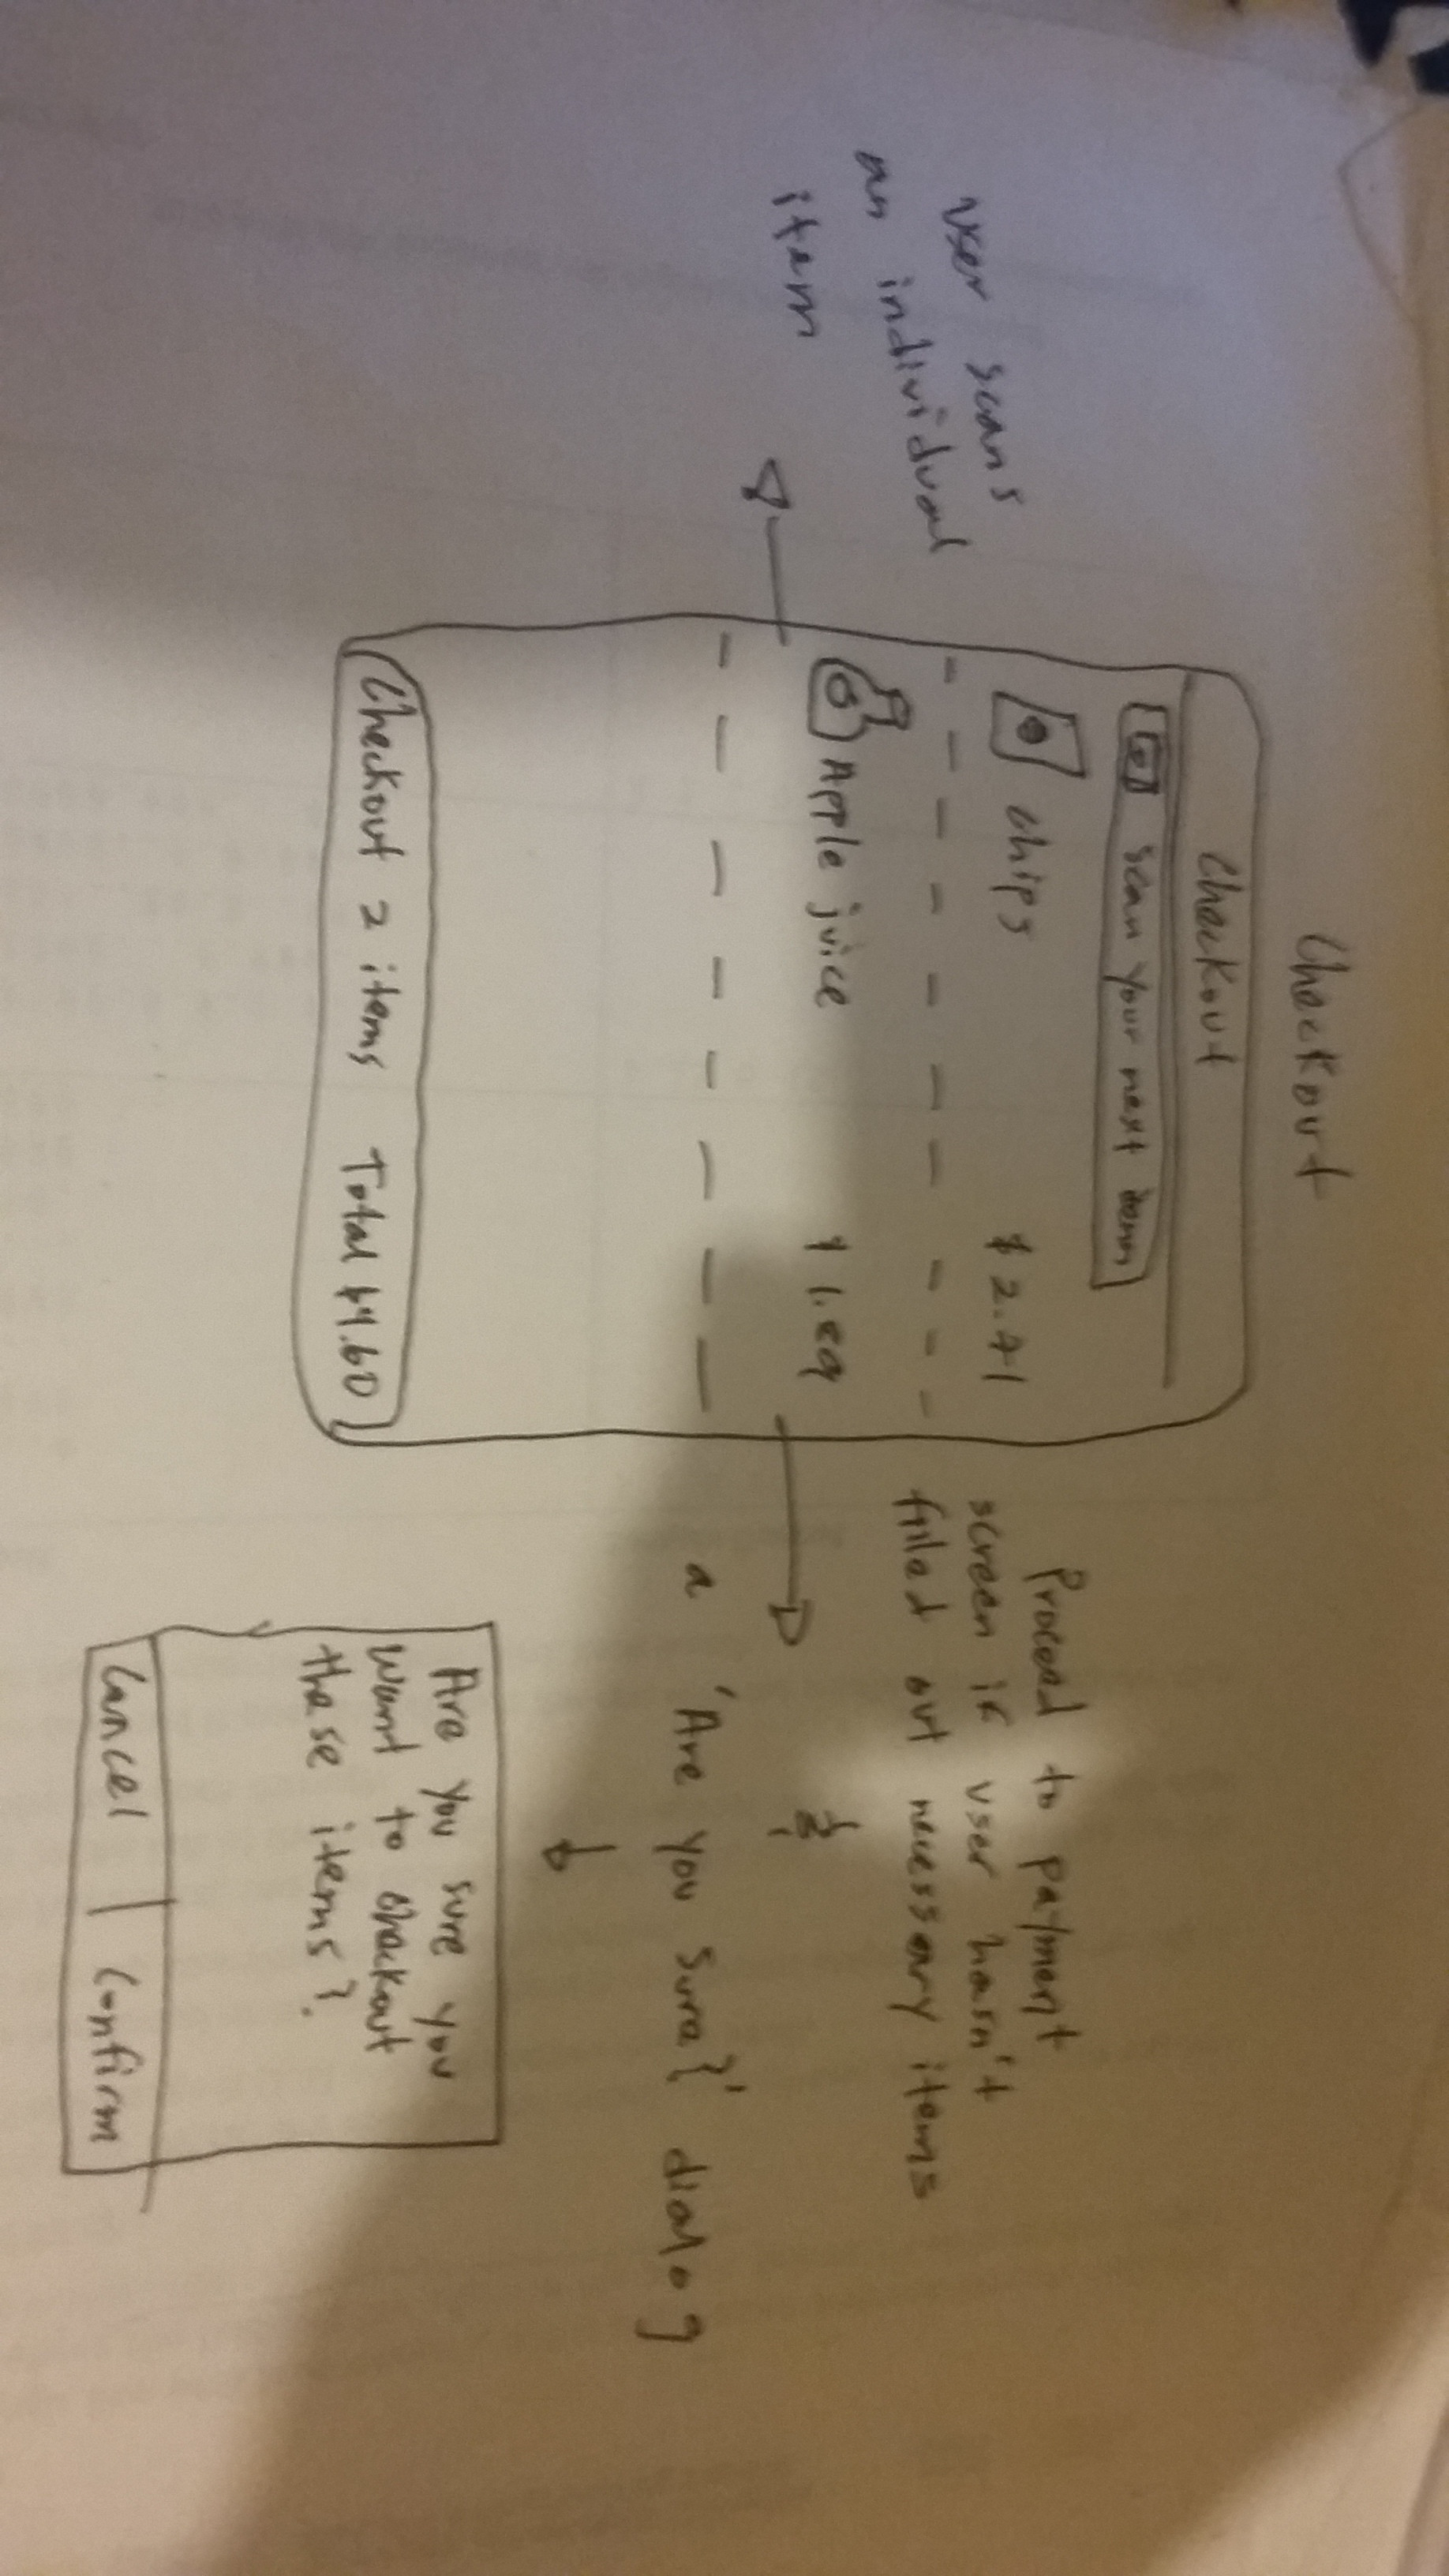 Checkout
Checkout
scan your next item
chips $2.71
Apple juice $1.89
Checkout 2 items Total $4.60
user scans
an individual
item
Proceed to payment
screen if user hasn't
filled out necessary items
a 'Are you sure?' dialog
Are you sure you
want to checkout
these items?
Cancel | Confirm